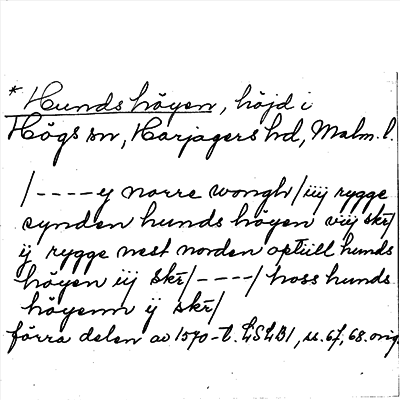 * Hundshöyen, höjd i
Högs sn, Harjagers hd, Malm. l.
/----ey norre wongh/iiij rygge
synden hunds höyen viij skr/
ij rygge nest norden optiill hunds
höyen iij skr/----/hoss hunds
höyenn ij skr/
förra delen av 1570-t. LSLB1, ss. 67, 68. orig.